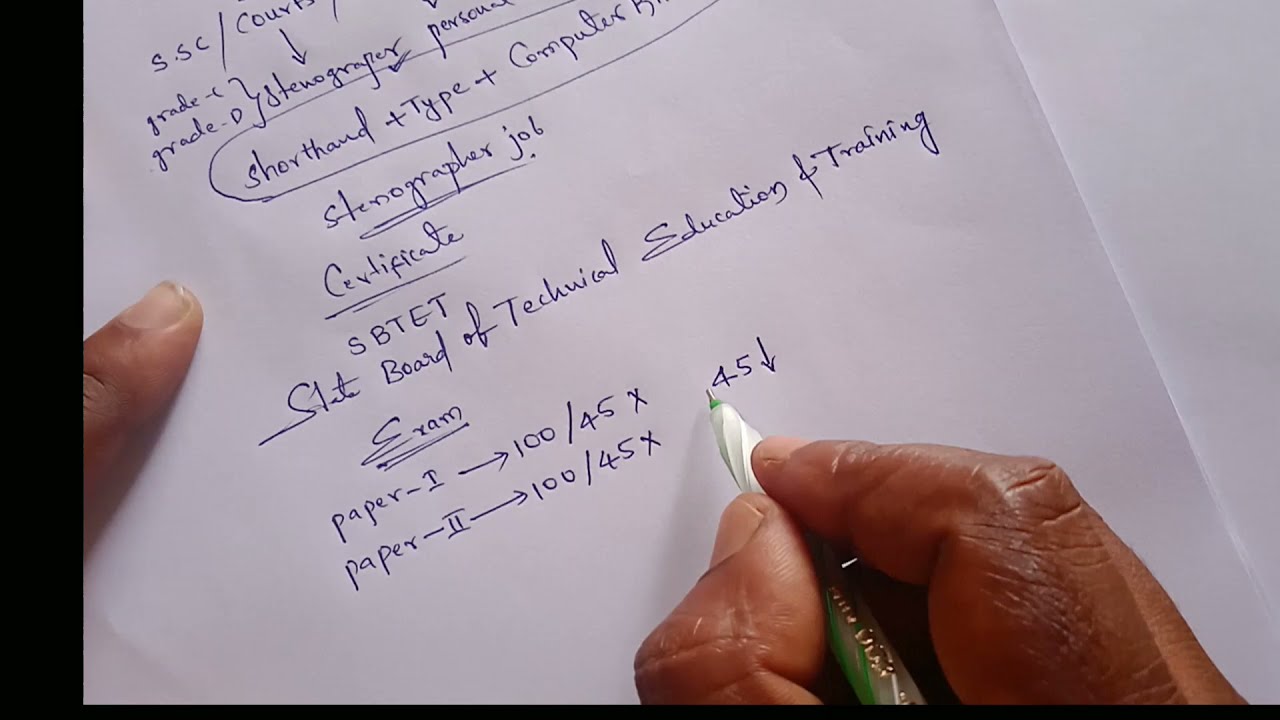 S.SC / Courts /
grade-C } stenograper personal
grade-D
shorthand + Type + Computer
Stenographer job.
Certificate
SBTET
State Board of Technical Education & Training
Exam
paper-I → 100/45 X 45↓
paper-II → 100/45 X